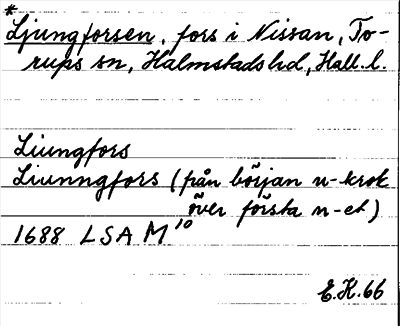 *
Ljungforsen, fors i Nissan, To-
rups sn, Halmstads hd, Hall. l.
Liungfors
Liunngfors (från början u-krok
över första n-et)
1688 LSA M 10
E.K. 66